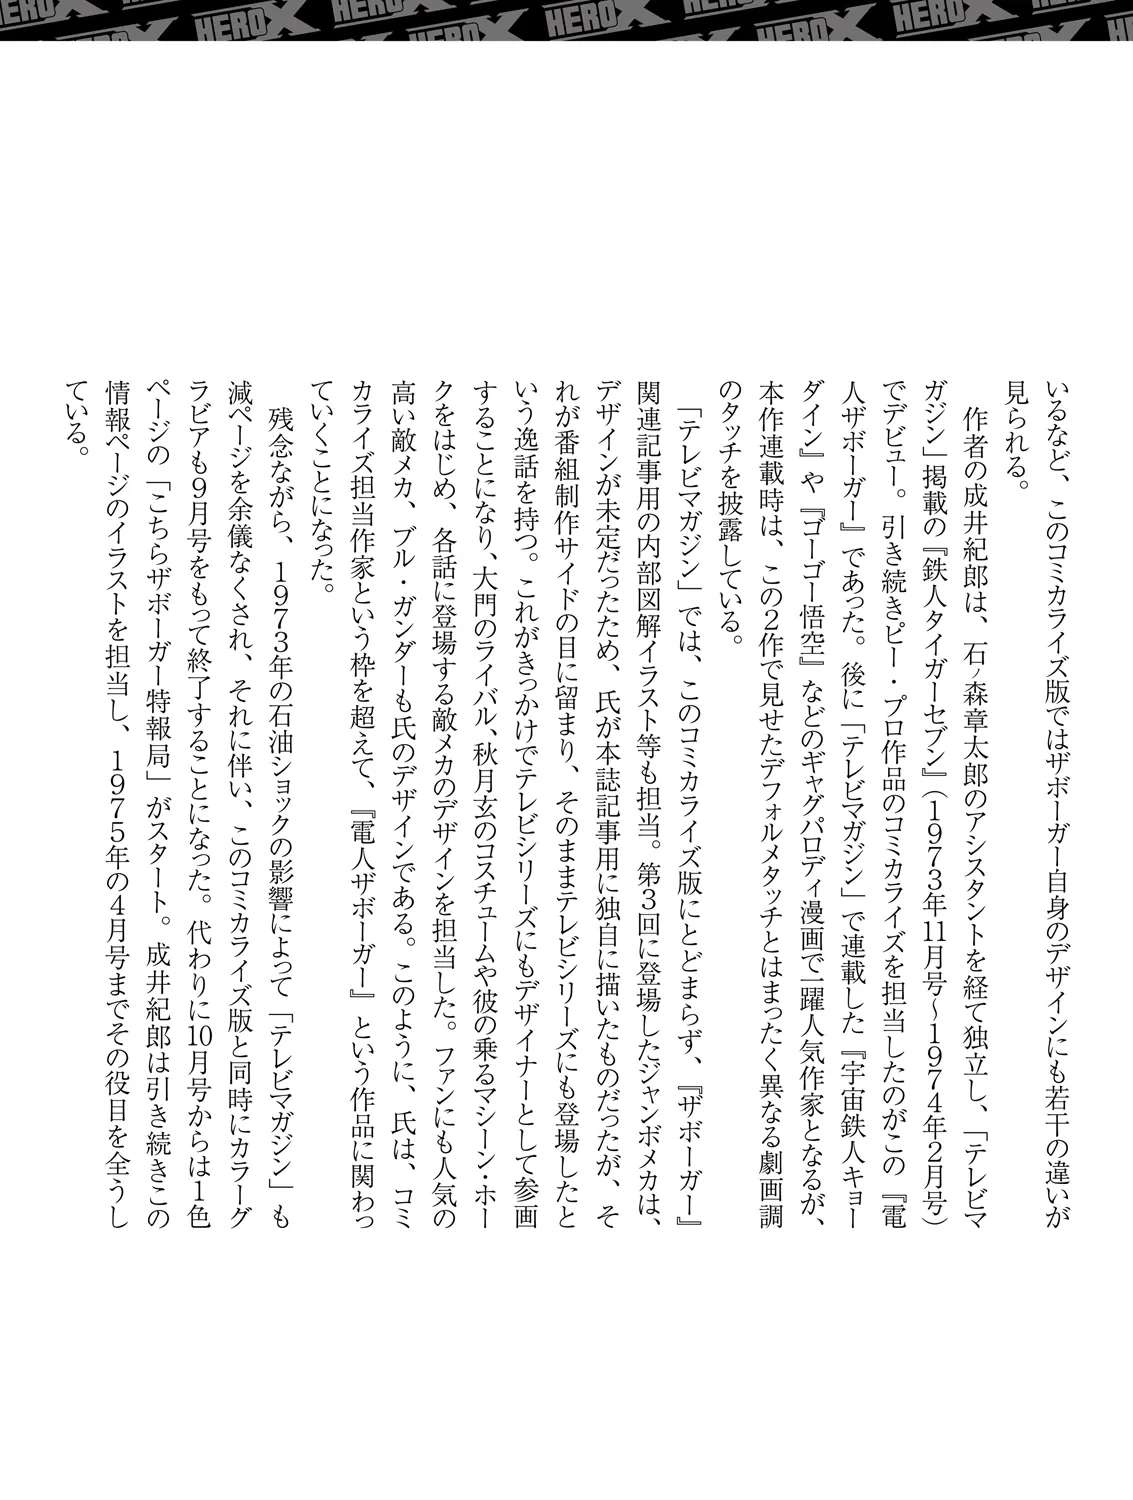 HERO X HERO X HERO X HERO X HERO X HERO X
いるなど、このコミカライズ版ではザボーガー自身のデザインにも若干の違いが
見られる。
　作者の成井紀郎は、石ノ森章太郎のアシスタントを経て独立し、「テレビマ
ガジン」掲載の『鉄人タイガーセブン』（1973年11月号～1974年2月号）
でデビュー。引き続きピー・プロ作品のコミカライズを担当したのがこの『電
人ザボーガー』であった。後に「テレビマガジン」で連載した『宇宙鉄人キョー
ダイン』や『ゴーゴー悟空』などのギャグパロディ漫画で一躍人気作家となるが、
本作連載時は、この2作で見せたデフォルメタッチとはまったく異なる劇画調
のタッチを披露している。
　「テレビマガジン」では、このコミカライズ版にとどまらず、『ザボーガー』
関連記事用の内部図解イラスト等も担当。第3回に登場したジャンボメカは、
デザインが未定だったため、氏が本誌記事用に独自に描いたものだったが、そ
れが番組制作サイドの目に留まり、そのままテレビシリーズにも登場したと
いう逸話を持つ。これがきっかけでテレビシリーズにもデザイナーとして参画
することになり、大門のライバル、秋月玄のコスチュームや彼の乗るマシーン・ホー
クをはじめ、各話に登場する敵メカのデザインを担当した。ファンにも人気の
高い敵メカ、ブル・ガンダーも氏のデザインである。このように、氏は、コミ
カライズ担当作家という枠を超えて、『電人ザボーガー』という作品に関わっ
ていくことになった。
　残念ながら、1973年の石油ショックの影響によって「テレビマガジン」も
減ページを余儀なくされ、それに伴い、このコミカライズ版と同時にカラーグ
ラビアも9月号をもって終了することになった。代わりに10月号からは1色
ページの「こちらザボーガー特報局」がスタート。成井紀郎は引き続きこの
情報ページのイラストを担当し、1975年の4月号までその役目を全うし
ている。